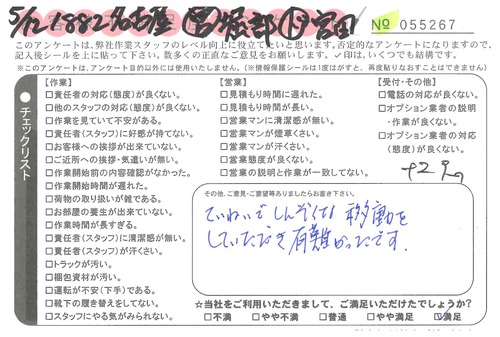 5/12 1882 名古屋 営 服部 リ 宮田
No 055267
このアンケートは、弊社作業スタッフのレベル向上に役立てたいと思います。否定的なアンケートになりますので、
記入後シールを上に貼って下さい。数多くの正直なご意見をお願いします。✓印は、いくつでも結構です。
※このアンケートは、アンケート目的以外には使用いたしません。(※情報保護シールは1度はがすと、再度貼りなおすことはできません)
チェックリスト
【作業】
□責任者の対応(態度)が良くない。
□他のスタッフの対応(態度)が良くない。
□作業を見ていて不安がある。
□責任者(スタッフ)に好感が持てない。
□お客様への挨拶が出来ていない。
□ご近所への挨拶・気遣いが無い。
□作業開始前の内容確認がなかった。
□作業開始時間が遅れた。
□荷物の取り扱いが雑である。
□お部屋の養生が出来ていない。
□作業時間が長すぎる。
□責任者(スタッフ)に清潔感が無い。
□責任者(スタッフ)が汗くさい。
□トラックが汚い。
□梱包資材が汚い。
□運転が不安(下手)である。
□靴下の履き替えをしてない。
□スタッフにやる気がみられない。
【営業】
□見積もり時間に遅れた。
□見積もり時間が長い。
□営業マンに清潔感が無い。
□営業マンが煙草くさい。
□営業マンが汗くさい。
□営業態度が良くない。
□営業の説明と作業が一致してない。
【受付・その他】
□電話の対応が良くない。
□オプション業者の説明
・作業が良くない。
□オプション業者の対応
(態度)が良くない。
その他、ご意見・ご要望等ありましたらお書き下さい。
ていねいでしんそくな移動を
していただき有難かったです。
☆当社をご利用いただきまして、ご満足いただけたでしょうか?
□不満 □やや不満 □普通 □やや満足 ☑満足